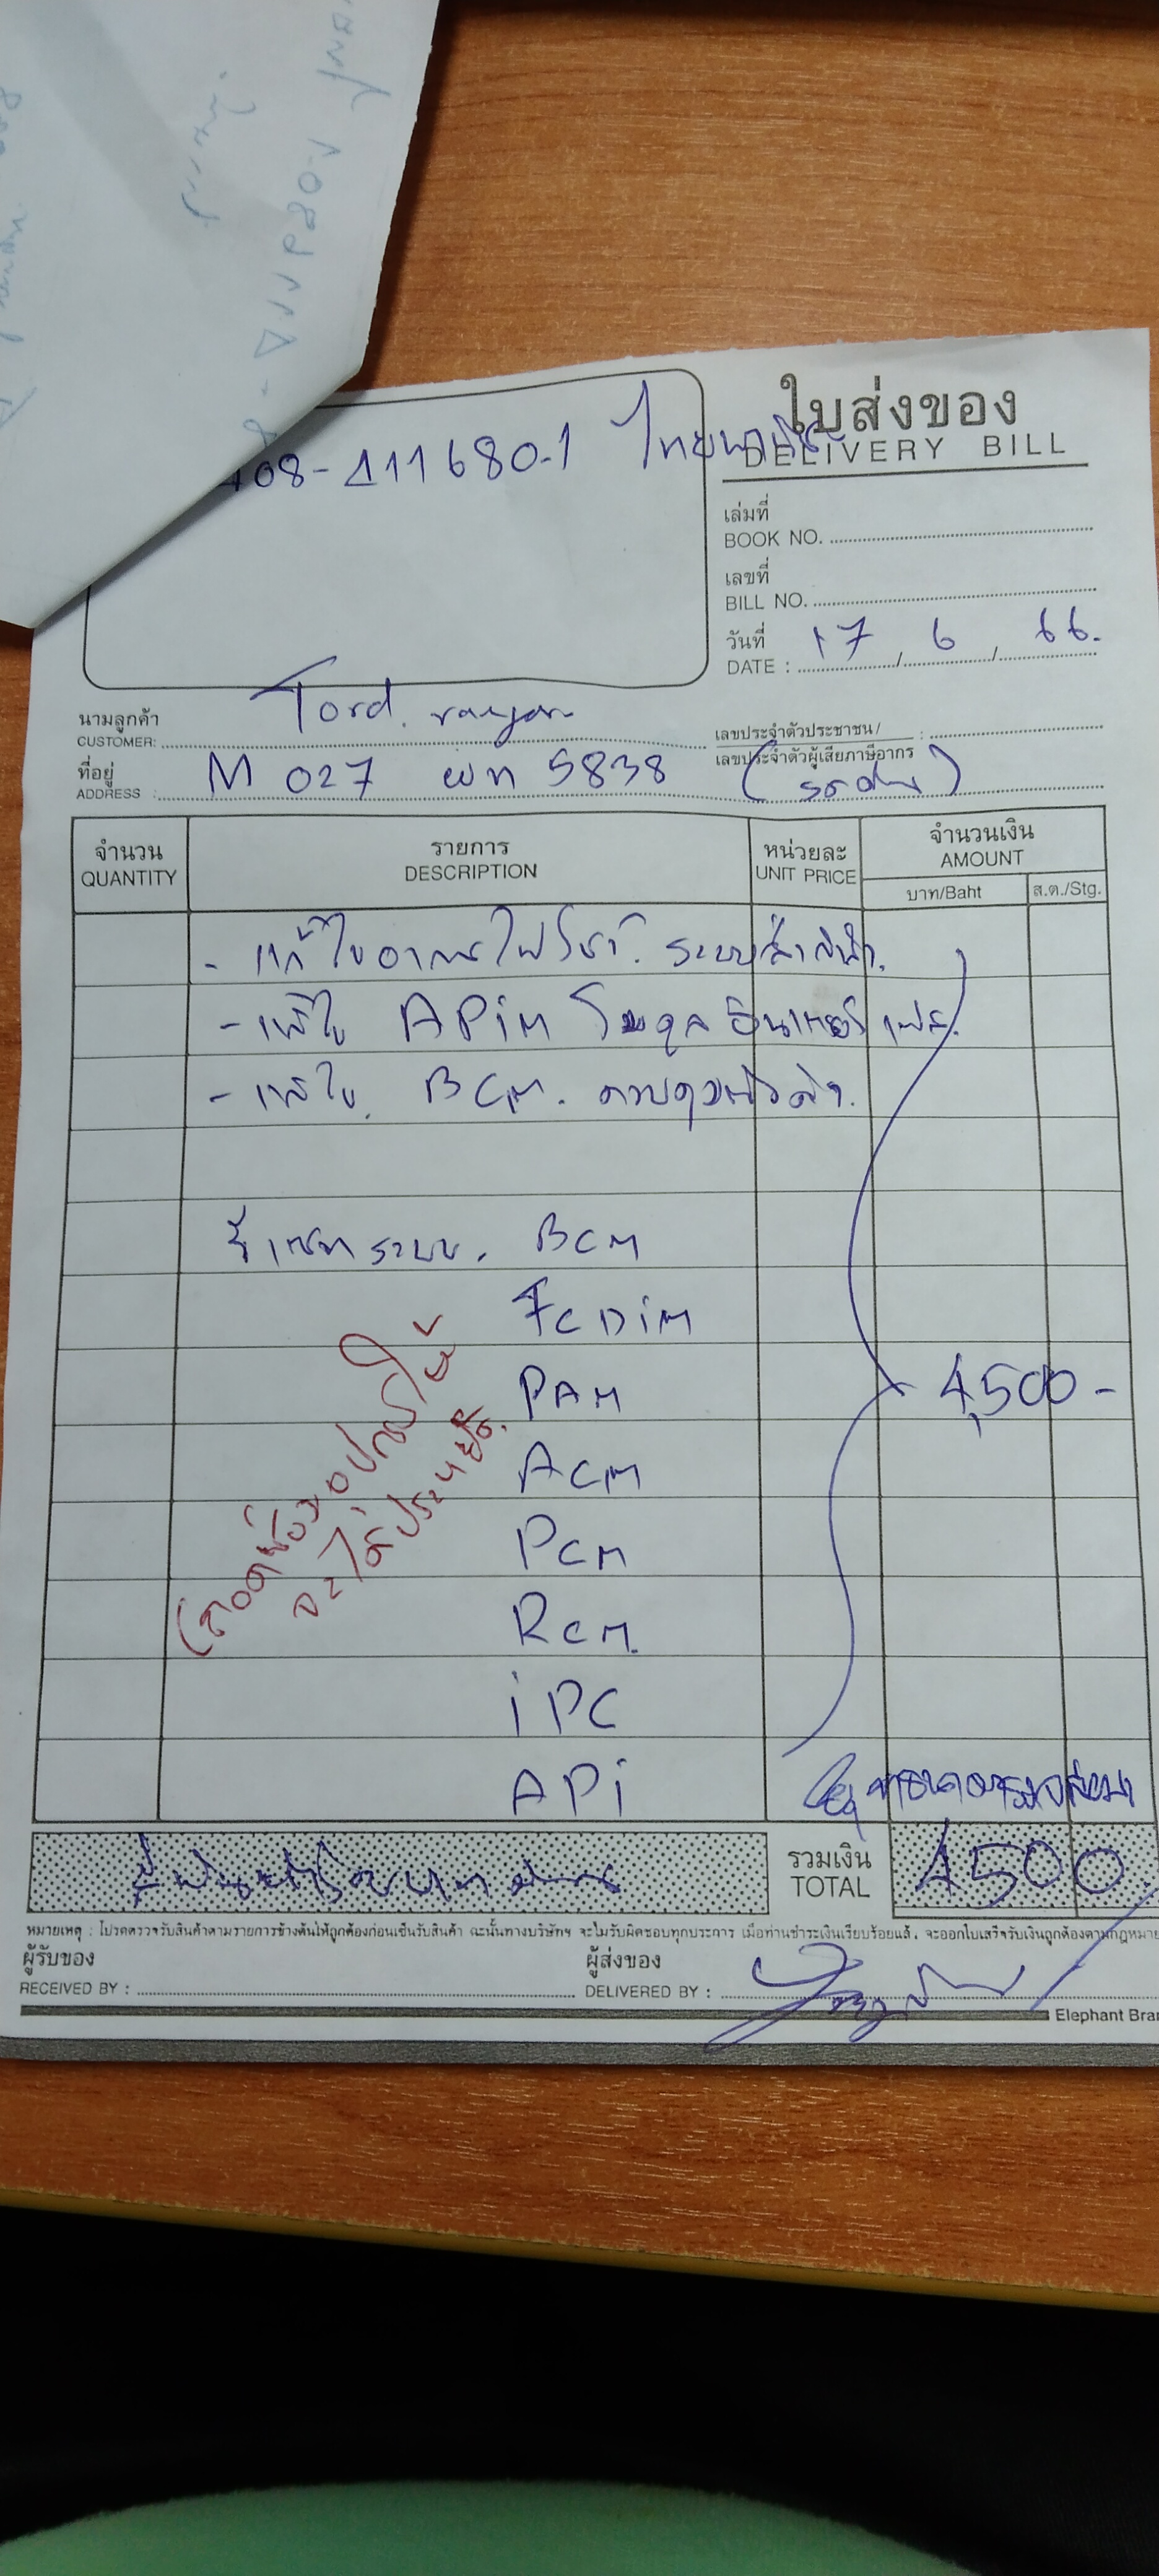 ใบส่งของ
DELIVERY BILL
408-111680-1 ไทยพาณิชย์
เล่มที่
BOOK NO.
เลขที่
BILL NO.
วันที่
DATE : 17 / 6 / 66.
นามลูกค้า
CUSTOMER: Ford.
เลขประจำตัวประชาชน/
เลขประจำตัวผู้เสียภาษีอากร :
ที่อยู่
ADDRESS : M 027 ผท 5838
จำนวน
QUANTITY
รายการ
DESCRIPTION
หน่วยละ
UNIT PRICE
จำนวนเงิน
AMOUNT
บาท/Baht
ส.ต./Stg.
- แก้ไขอาการไฟโชว์. ระบบ
- แก้ไข APiM โมดูล อินเทอร์เฟส.
- แก้ไข. BCM. ควบคุมตัวถัง.
รีเซทระบบ. BCM
FCDiM
PAM
4,500 -
ACM
PCM
RCM.
iPC
APi
(ถอดซ่อมอุปกรณ์
รวมเงิน
TOTAL
4500
สี่พันห้าร้อยบาทถ้วน
หมายเหตุ : โปรดตรวจรับสินค้าตามรายการข้างต้นให้ถูกต้องก่อนเซ็นรับสินค้า ฉะนั้นทางบริษัทฯ จะไม่รับผิดชอบทุกประการ เมื่อท่านชำระเงินเรียบร้อยแล้ว, จะออกใบเสร็จรับเงินถูกต้องตามกฎหมาย
ผู้รับของ
RECEIVED BY :
ผู้ส่งของ
DELIVERED BY :
Elephant Bran